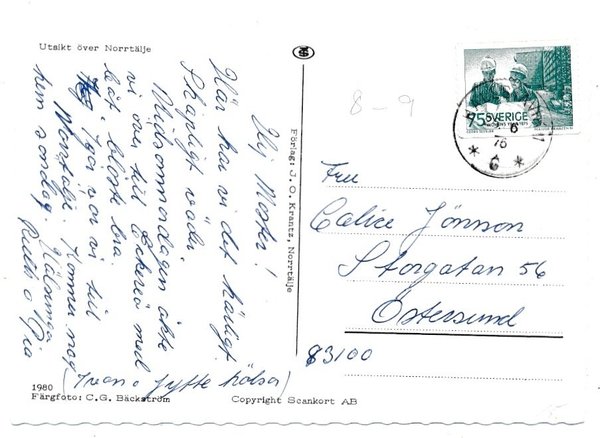 Utsikt över Norrtälje
Hej Moster!
Här har vi det härligt.
Skapligt väder.
Midsommardagen åkte
vi över till Eckerö med
båt, bloste bra.
Igår var vi till
Norrtälje. Kommer nog
hem söndag. Hälsningar
Ruth o Pia
(Ivan o Jytte hälsar)
1980
Färgfoto: C.G. Bäckström
Förlag: J. O. Krantz, Norrtälje
Copyright Scankort AB
8-9
75 SVERIGE
6
76
* 6 *
Fru
Calice Jönson
Storgatan 56
Östersund
83100